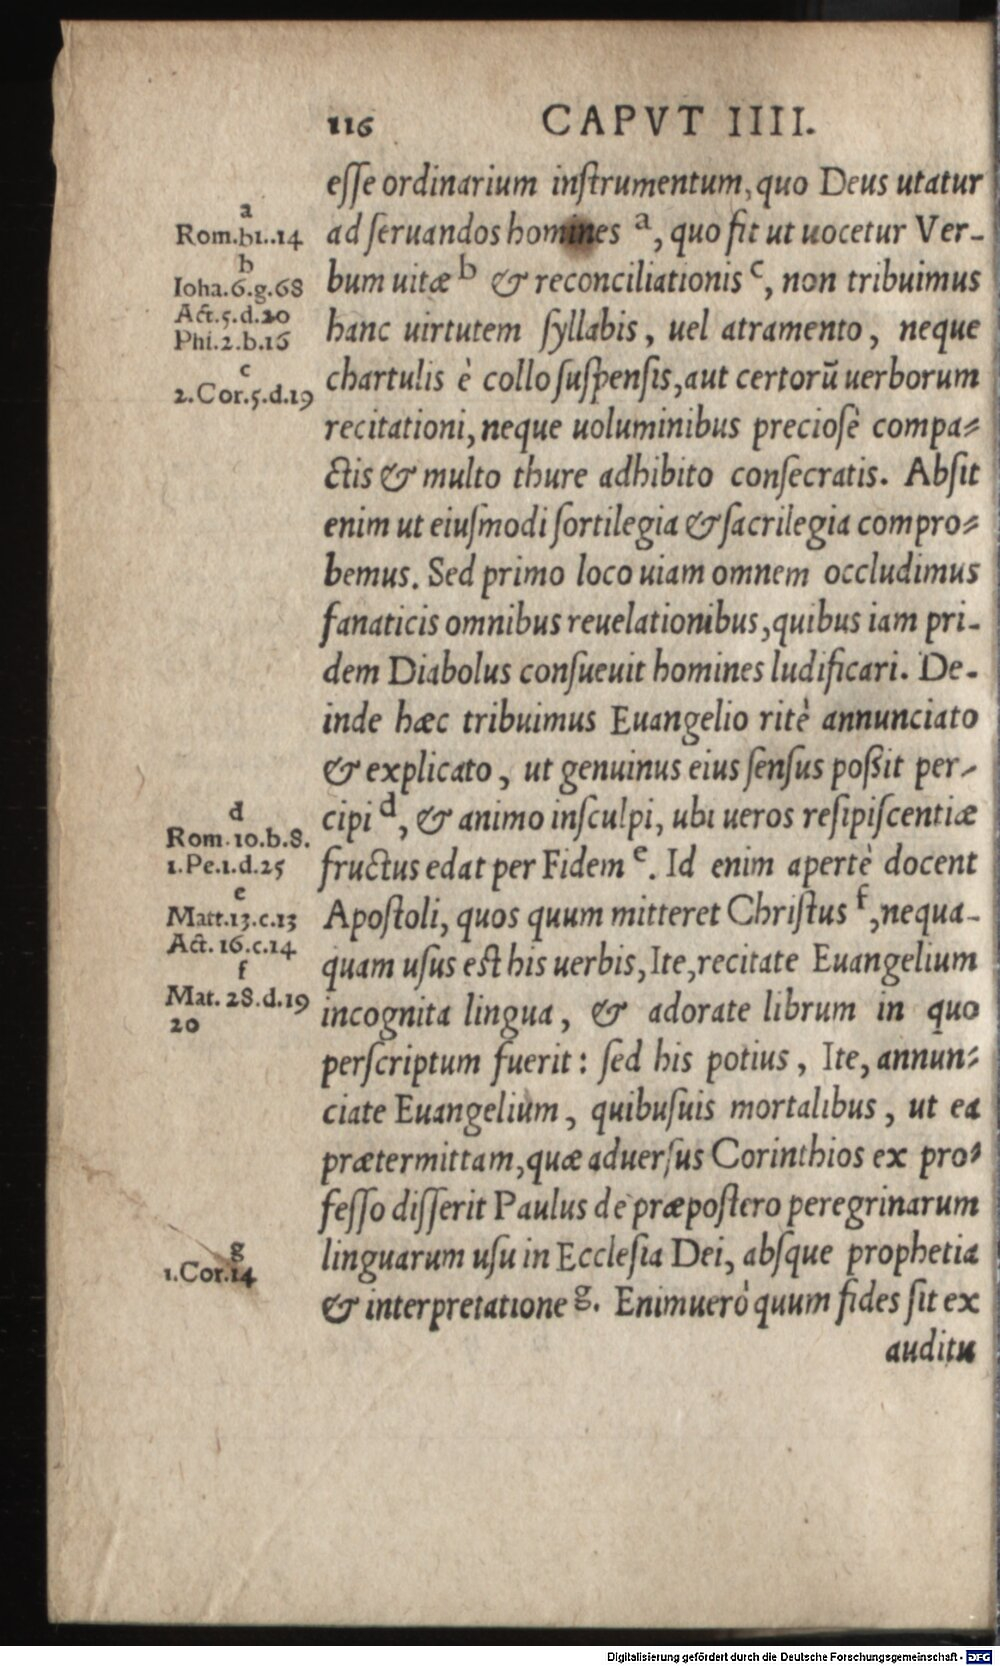 116 CAPVT IIII.
esse ordinarium instrumentum, quo Deus utatur
ad seruandos homines a, quo fit ut uocetur Ver-
bum uitæ b & reconciliationis c, non tribuimus
hanc uirtutem syllabis, uel atramento, neque
chartulis è collo suspensis, aut certorū uerborum
recitationi, neque uoluminibus preciosè compa-
ctis & multo thure adhibito consecratis. Absit
enim ut eiusmodi sortilegia & sacrilegia compro-
bemus. Sed primo loco uiam omnem occludimus
fanaticis omnibus reuelationibus, quibus iam pri-
dem Diabolus consueuit homines ludificari. De-
inde hæc tribuimus Euangelio ritè annunciato
& explicato, ut genuinus eius sensus possit per-
cipi d, & animo insculpi, ubi ueros resipiscentiæ
fructus edat per Fidem e. Id enim apertè docent
Apostoli, quos quum mitteret Christus f, nequa-
quam usus est his uerbis, Ite, recitate Euangelium
incognita lingua, & adorate librum in quo
perscriptum fuerit: sed his potius, Ite, annun-
ciate Euangelium, quibusuis mortalibus, ut ea
prætermittam, quæ aduersus Corinthios ex pro-
fesso disserit Paulus de præpostero peregrinarum
linguarum usu in Ecclesia Dei, absque prophetia
& interpretatione g. Enimuerò quum fides sit ex
auditu
a
Rom.b1..14
b
Ioha.6.g.68
Act.5.d.20
Phi.2.b.16
c
2.Cor.5.d.19
d
Rom.10.b.8.
1.Pe.1.d.25
e
Matt.13.c.13
Act. 16.c.14
f
Mat. 28.d.19
20
g
1.Cor.14
Digitalisierung gefördert durch die Deutsche Forschungsgemeinschaft - DFG